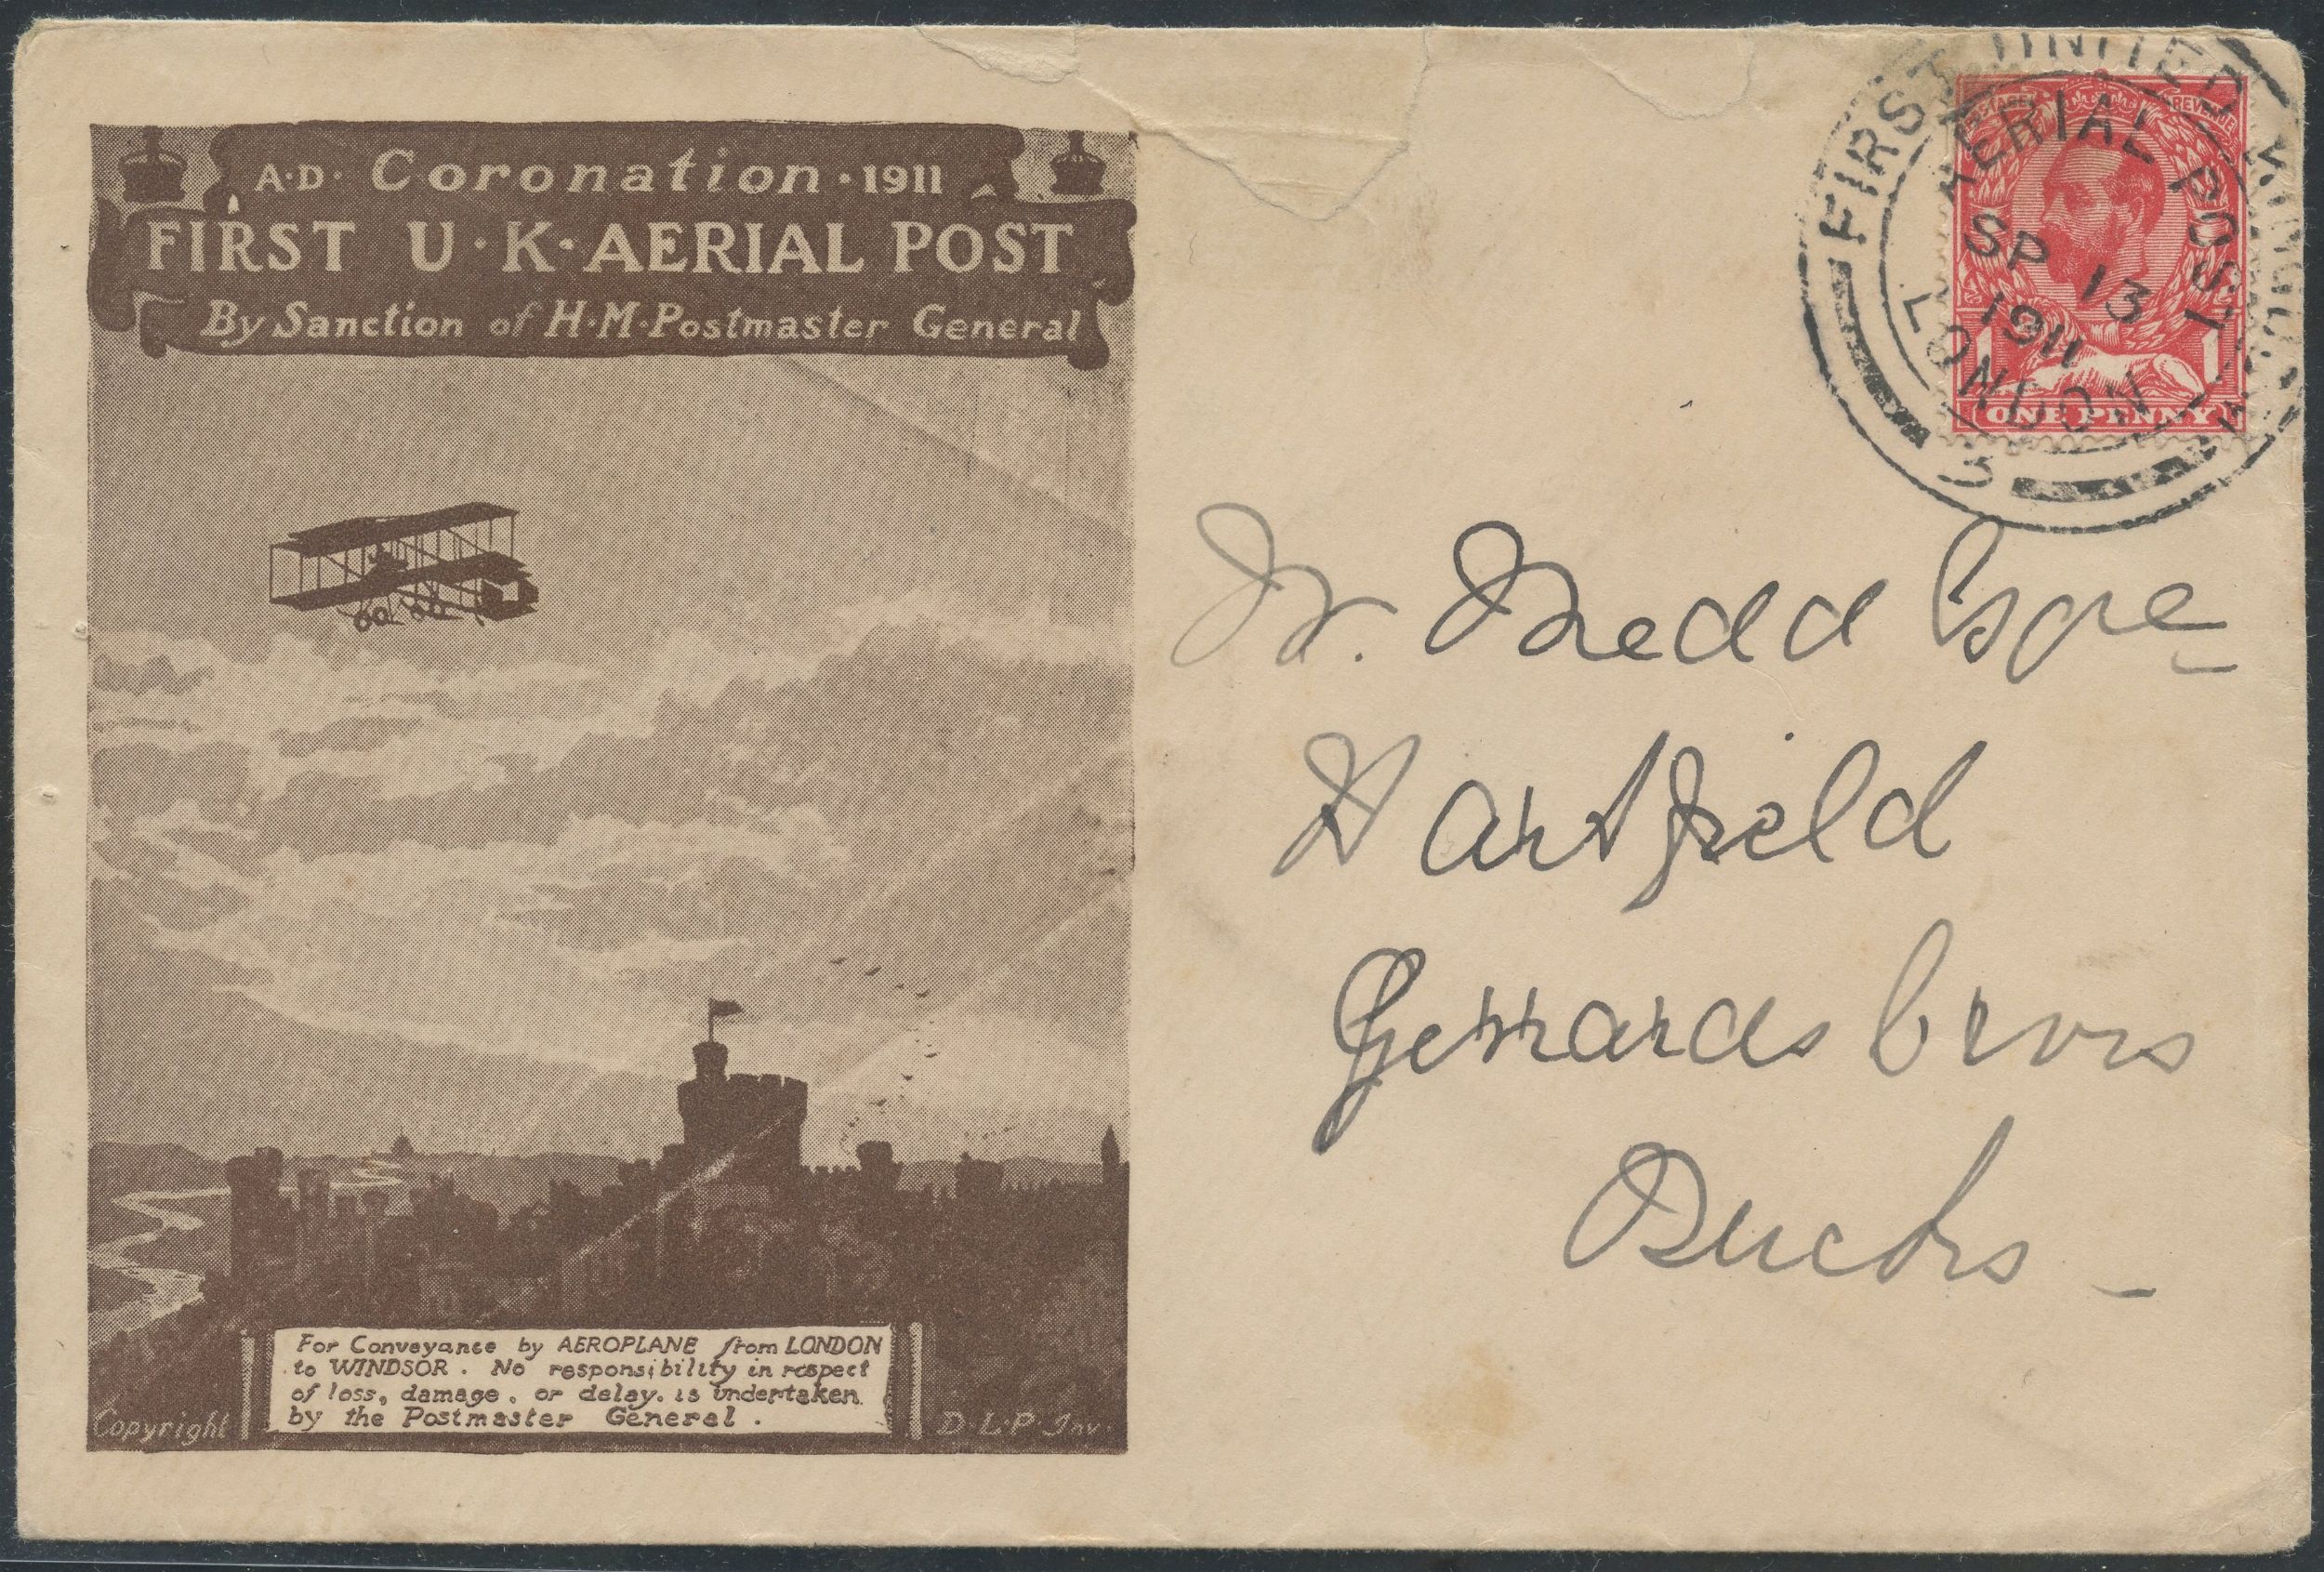 A·D· Coronation · 1911
FIRST U·K·AERIAL POST
By Sanction of H·M·Postmaster General
For Conveyance by AEROPLANE from LONDON
to WINDSOR. No responsibility in respect
of loss, damage, or delay, is undertaken
by the Postmaster General.
Copyright
D·L·P· Inv.
FIRST UNITED KINGDOM
AERIAL POST
SP 13
1911
LONDON
3
POSTAGE
REVENUE
1 1
ONE PENNY
Hartfield
Gerrards Cross
Bucks